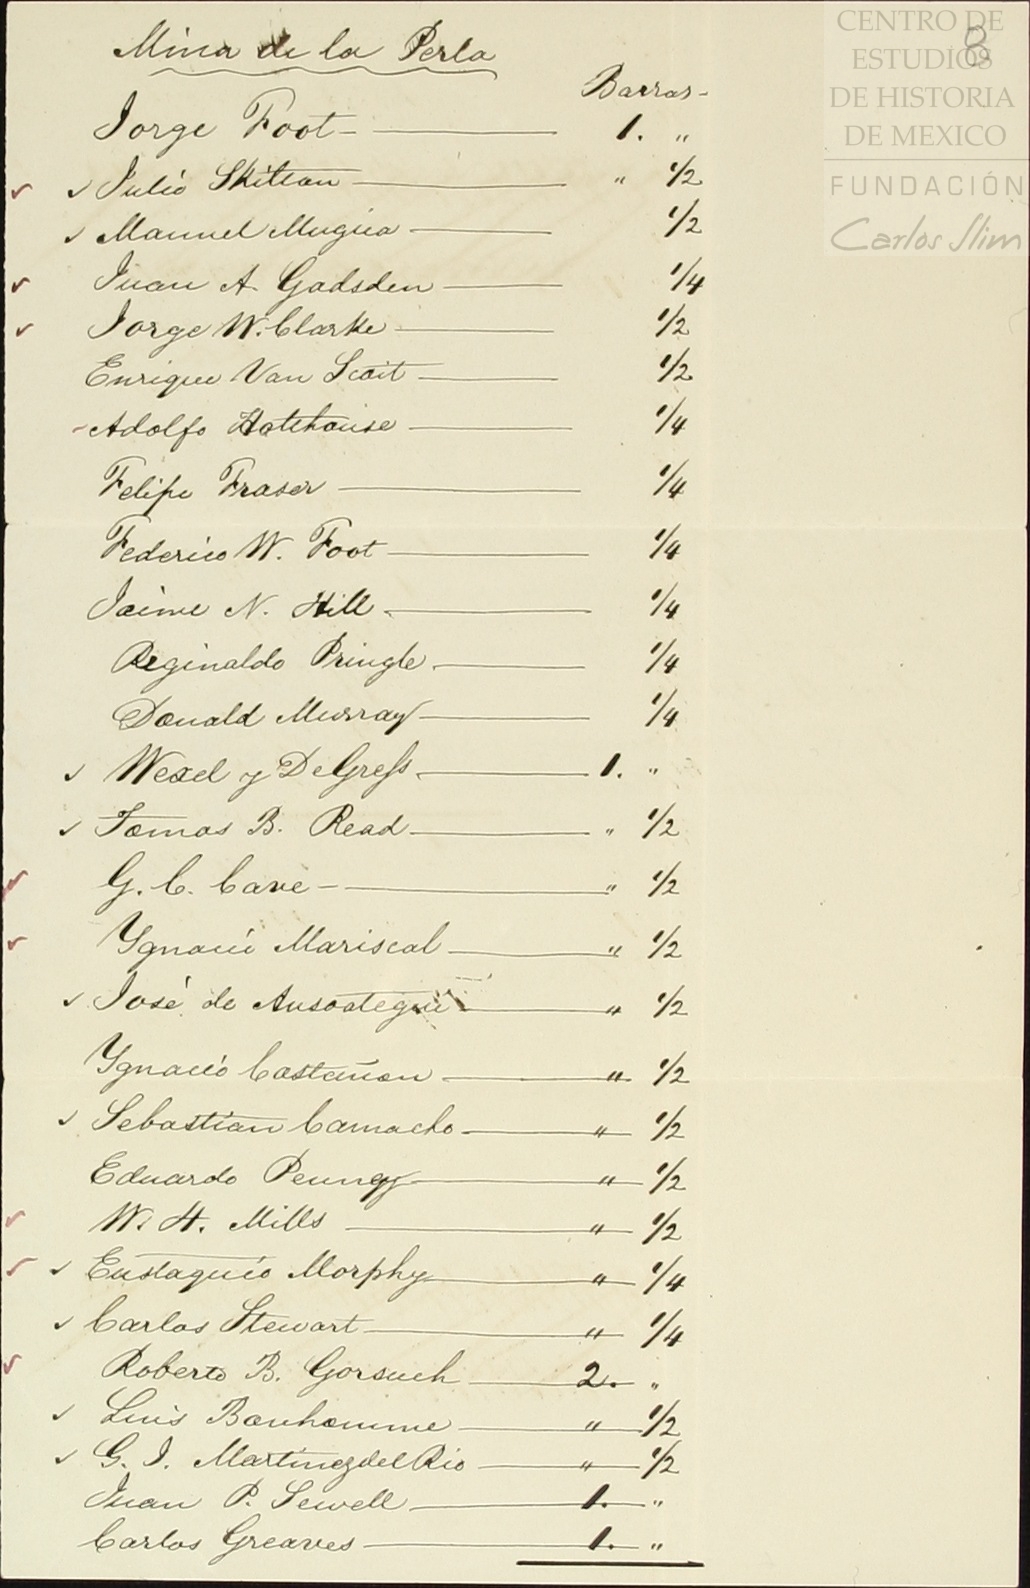 Mina de la Perla
CENTRO DE
ESTUDIOS
DE HISTORIA
DE MEXICO
FUNDACIÓN
Carlos Slim
8
Barras -
Jorge Foot - 1. "
Julio Skilton " 1/2
Manuel Mugica 1/2
Juan A Gadsden 1/4
Jorge W. Clarke 1/2
Enrique Van Scoit 1/2
Adolfo Hatchouse 1/4
Felipe Fraser 1/4
Federico W. Foot 1/4
Jaime N. Hill 1/4
Reginaldo Pringle 1/4
Donald Murray 1/4
Wexel y DeGress 1. "
Tomas B. Read " 1/2
G. C. Cave - " 1/2
Ygnacio Mariscal " 1/2
José de Ansoategui " 1/2
Ygnacio Castañon " 1/2
Sebastian Camacho " 1/2
Eduardo Penny " 1/2
W. H. Mills " 1/2
Eustaquio Morphy " 1/4
Carlos Stewart " 1/4
Roberto B. Gorsuch 2. "
Luis Bonhomme " 1/2
G. I. Martinez del Rio " 1/2
Juan P. Sewell 1. "
Carlos Greaves 1. "